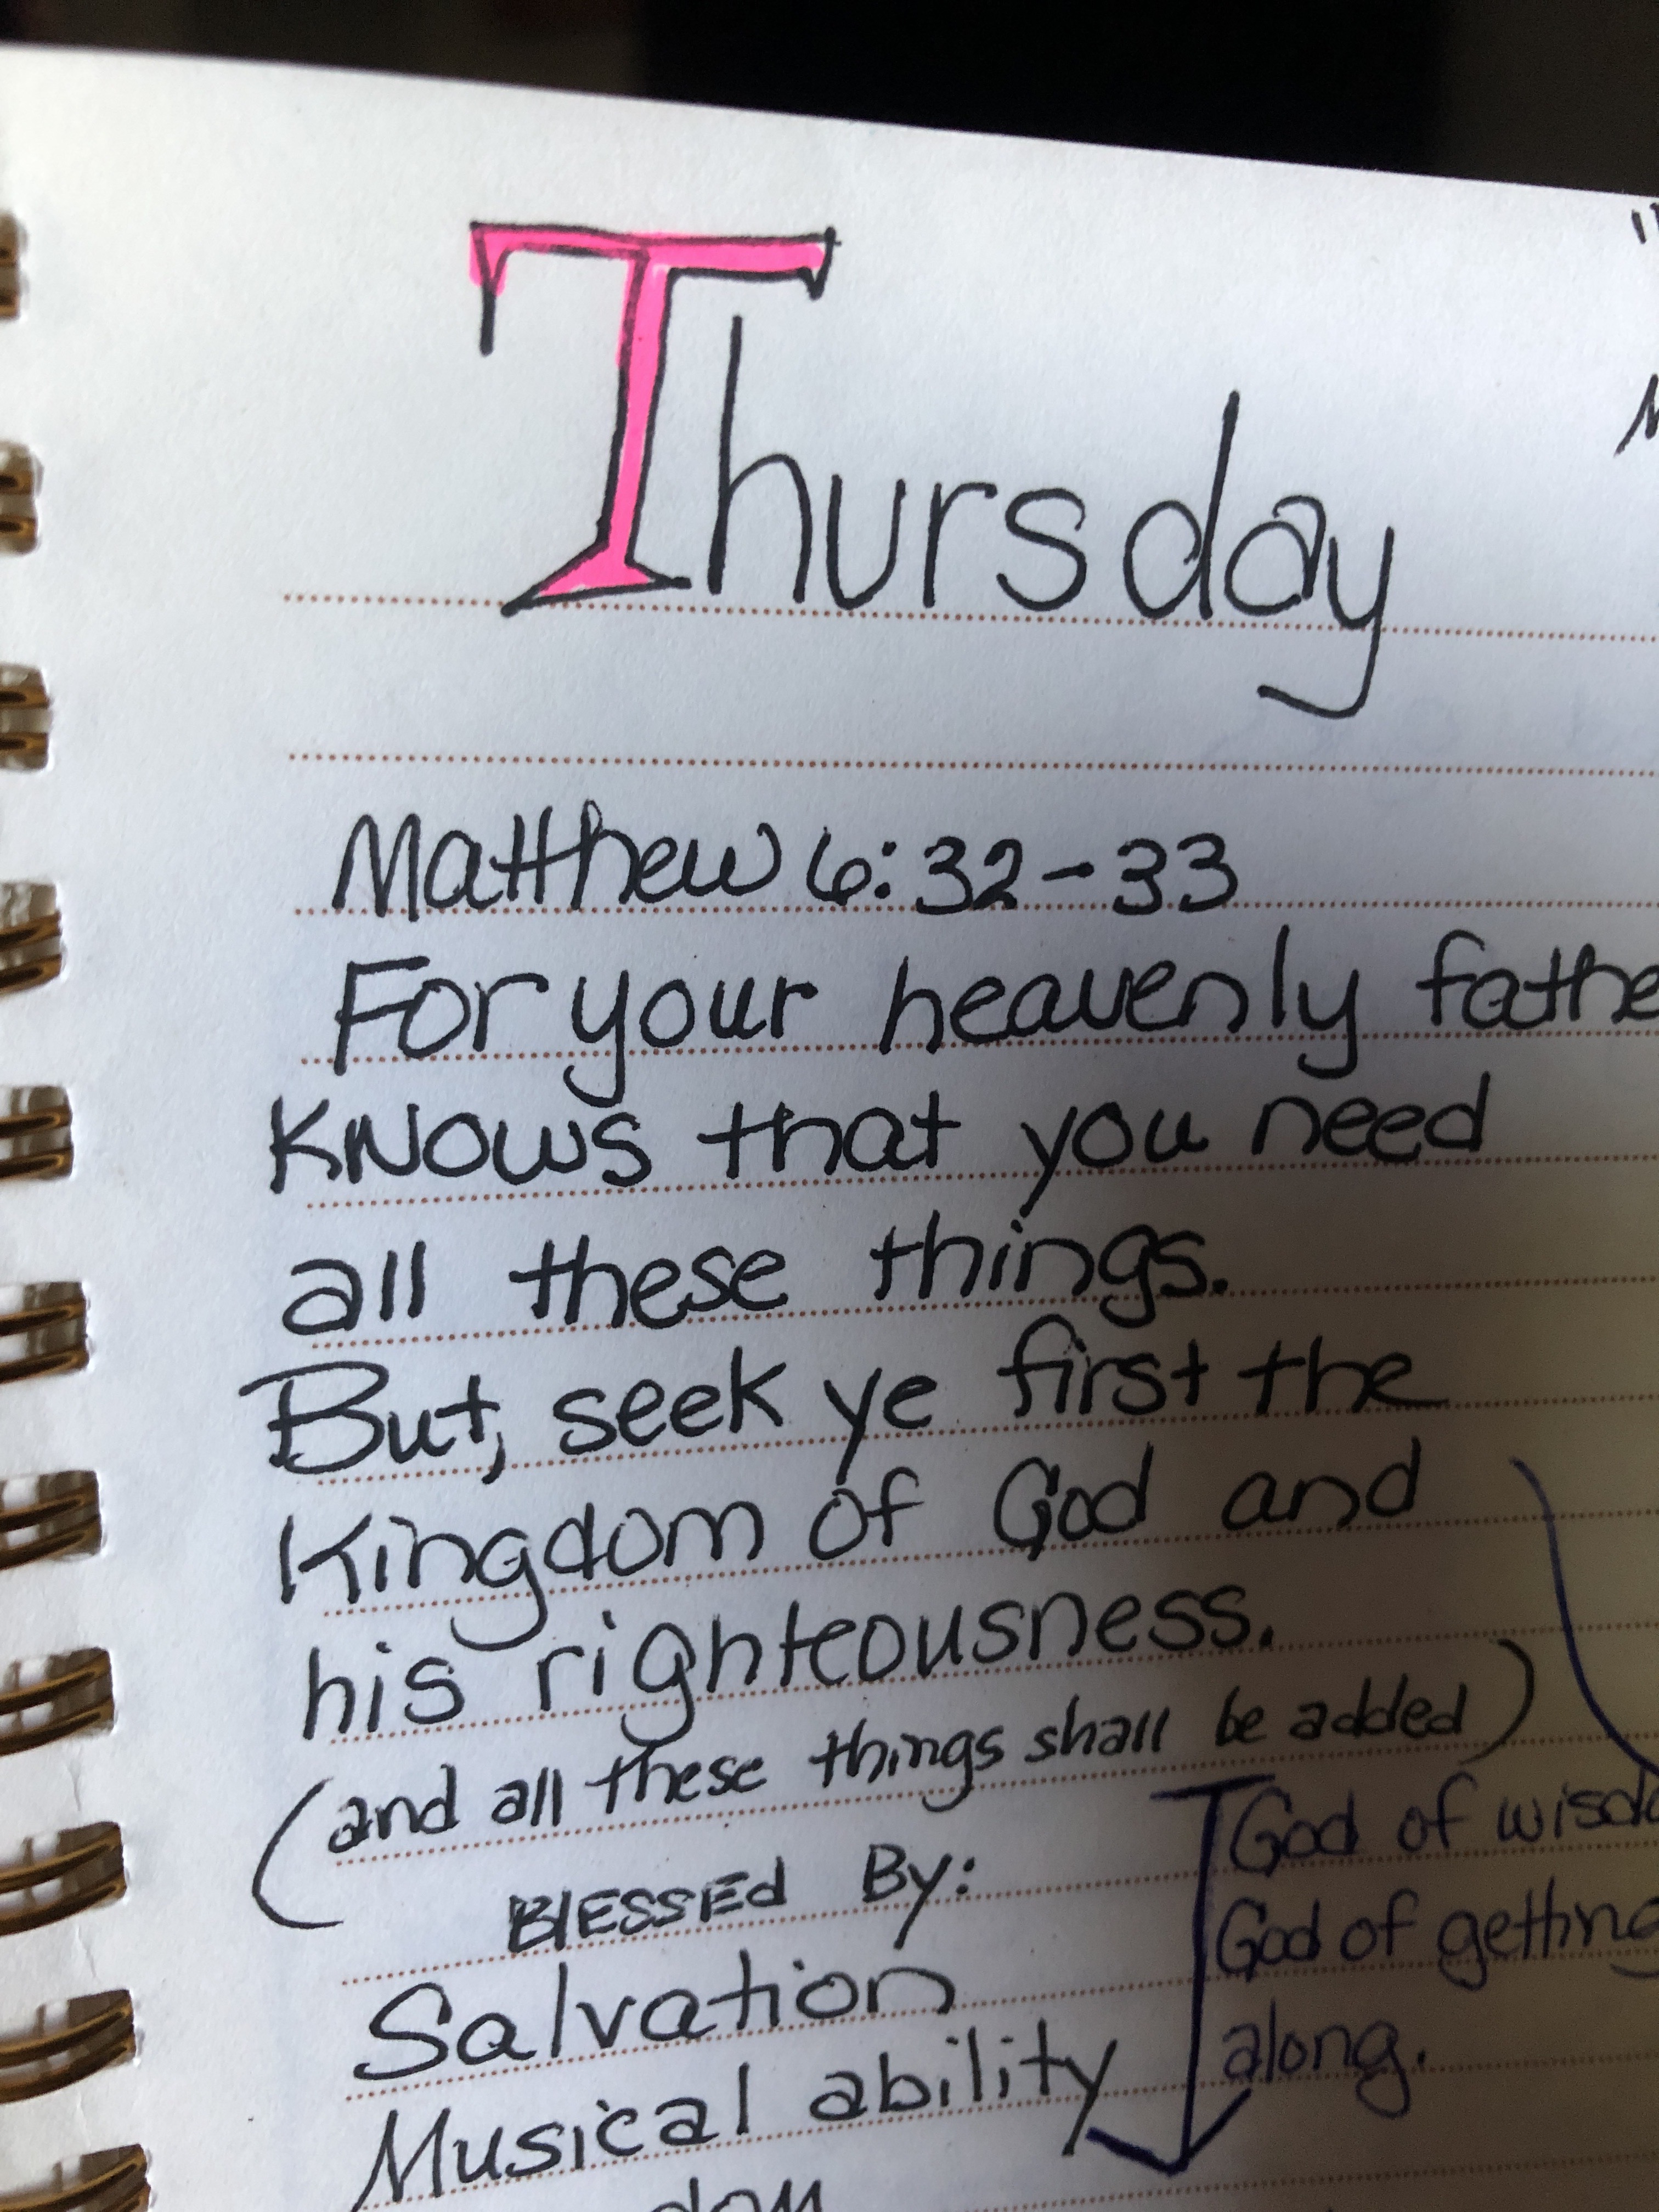 Thursday
Matthew 6:32-33
For your heavenly fathe
knows that you need
all these things.
But, seek ye first the
Kingdom of God and
his righteousness.
(and all these things shall be added)
BLESSED By:
Salvation
Musical ability
God of wisdo
God of getting
along.